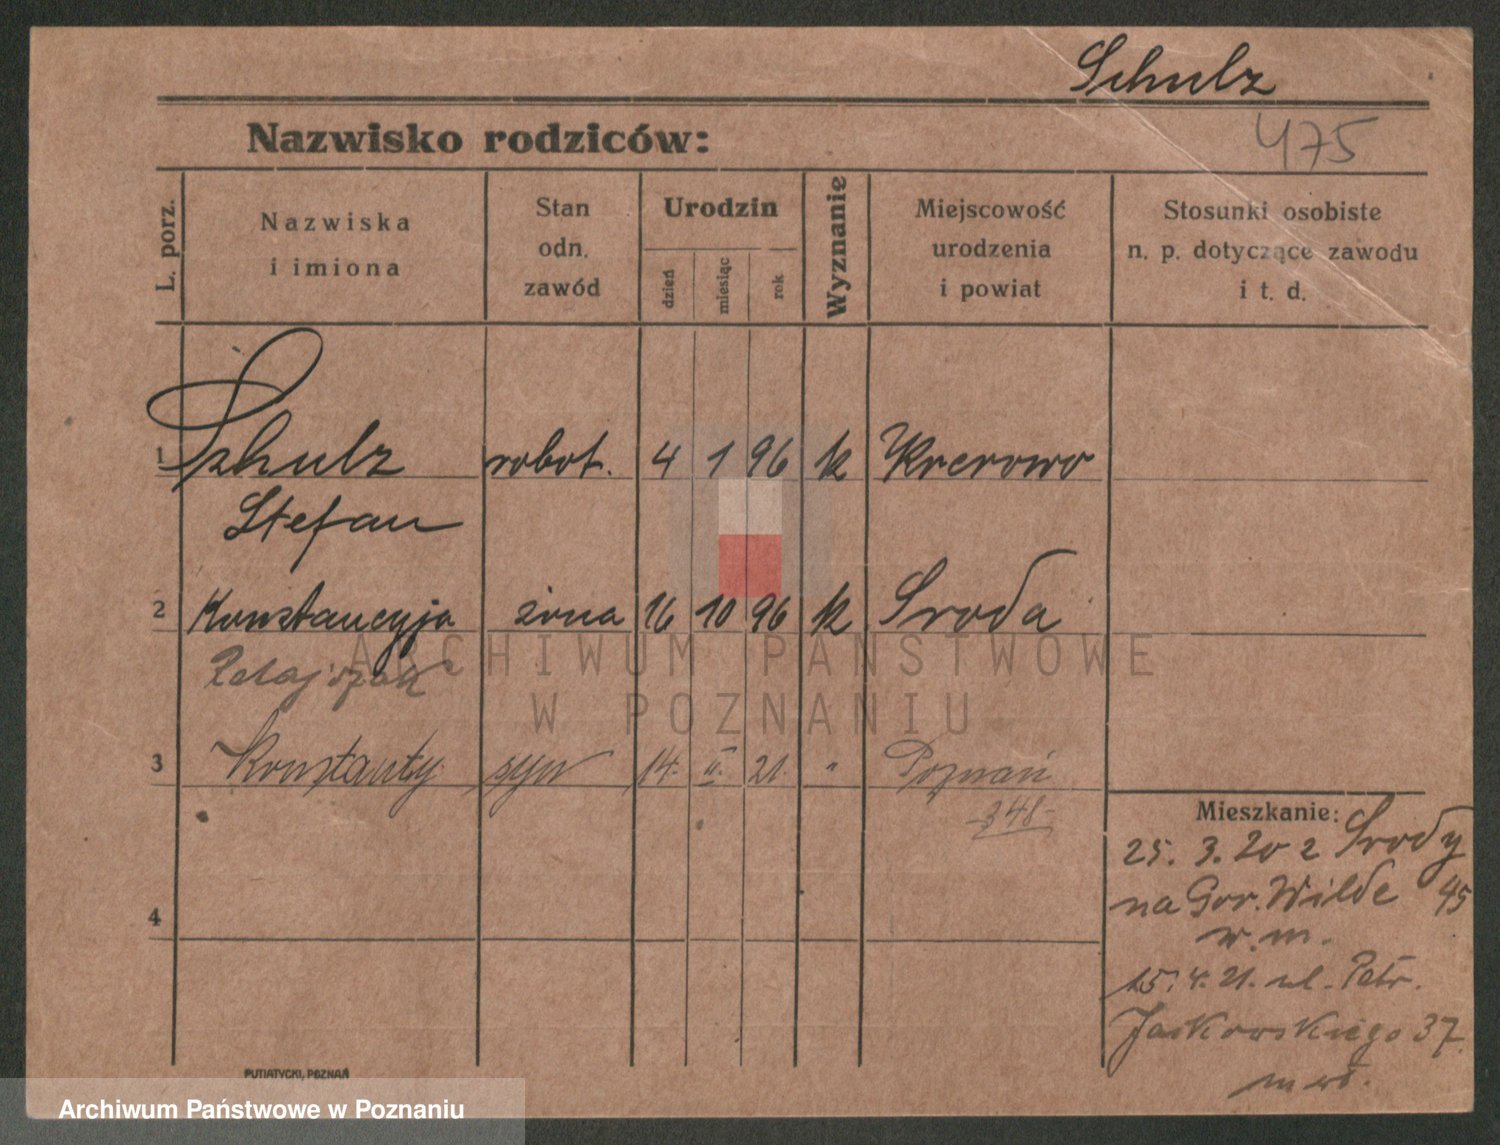 Schulz
Nazwisko rodziców:
475
L. porz.
Nazwiska
i imiona
Stan
odn.
zawód
Urodzin
dzień
miesiąc
rok
Wyznanie
Miejscowość
urodzenia
i powiat
Stosunki osobiste
n. p. dotyczące zawodu
i t. d.
1 Schulz robot. 4 1 96 k Krerowo
Stefan
2 Konstancyja żona 16 10 96 k Sroda
Ratajczak
ARCHIWUM PAŃSTWOWE
W POZNANIU
3 Konstanty syn 14. II. 21. " Poznań
348-
Mieszkanie:
25. 3. 20 z Srody
na Gor. Wilde 45
w. m.
4
15. 4. 21. ul. Patr.
Jackowskiego 37.
PUTIATYCKI, POZNAŃ
Archiwum Państwowe w Poznaniu